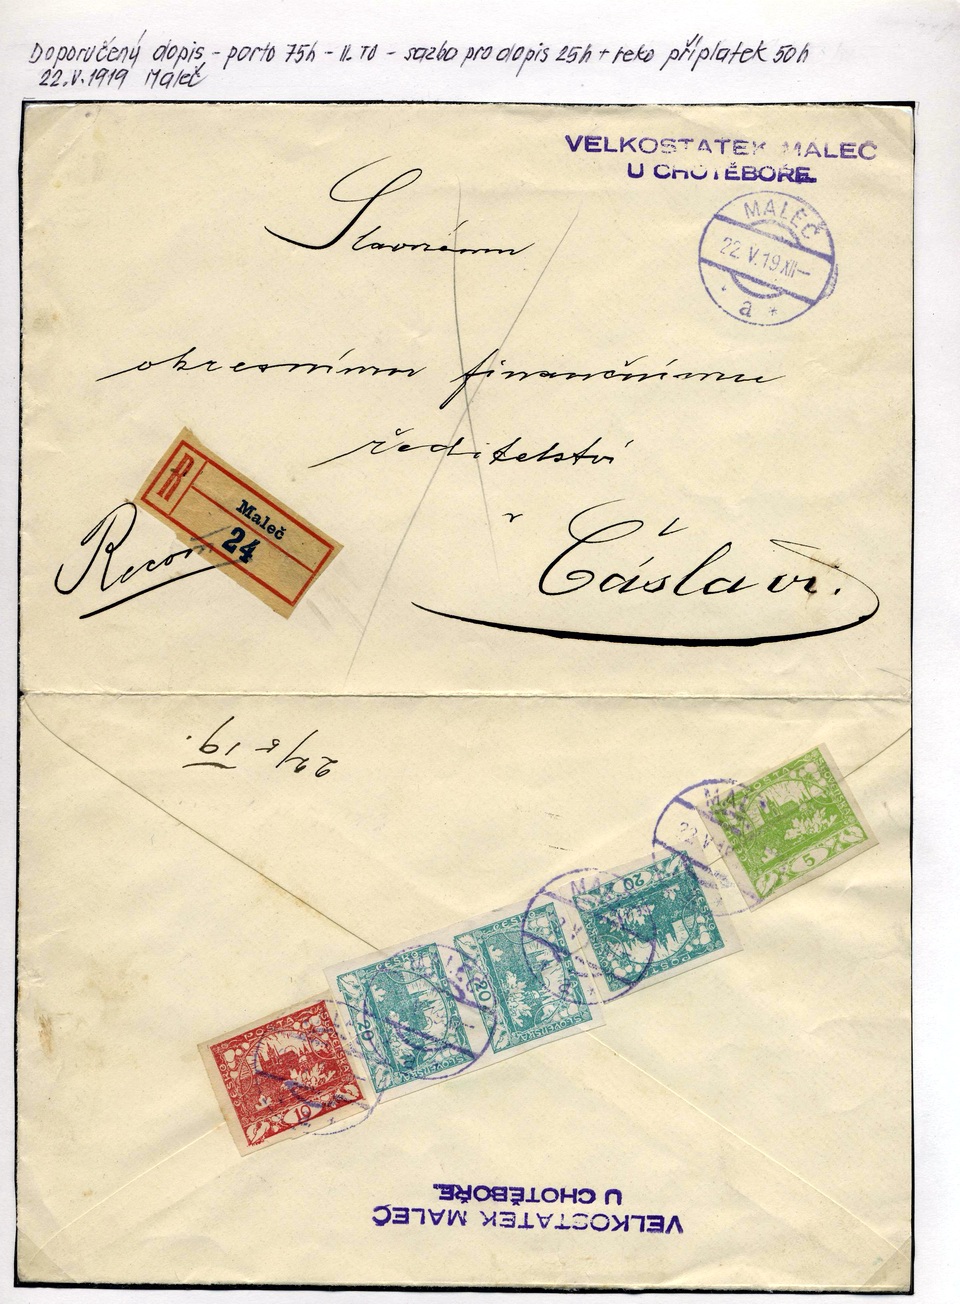 Doporučený dopis - porto 75h - II. TO - sazba pro dopis 25h + reko příplatek 50h
22.V.1919 Maleč
VELKOSTATEK MALEČ
U CHOTĚBOŘE.
MALEČ
22.V.19 XII-
a *
Slavnému
okresnímu finančnímu
ředitelství
v Čáslavi.
R
Maleč
24
Recom
22/5 19.
POSTA
ČESKO
SLOVENSKÁ
5
20
POSTA
20
ČESKO
SLOVENSKÁ
20
ČESKO
SLOVENSKÁ
POSTA
ČESKO
SLOVENSKÁ
10
VELKOSTATEK MALEČ
U CHOTĚBOŘE.